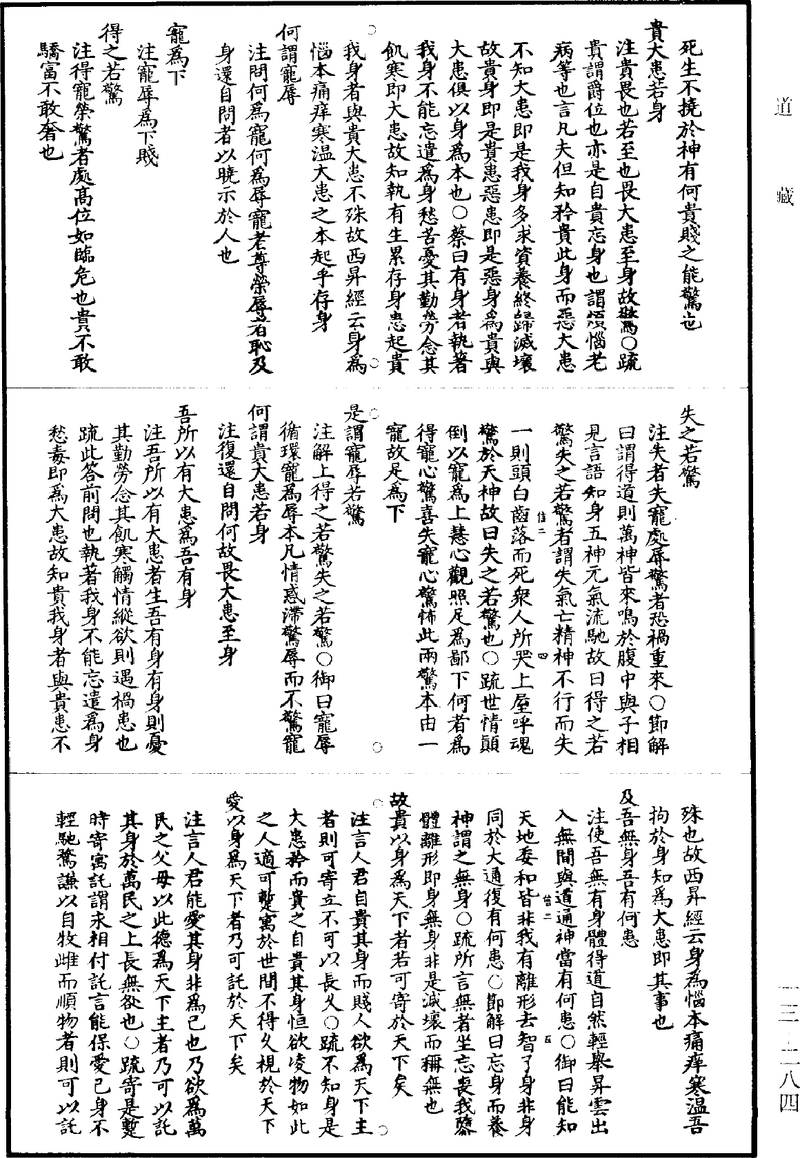 道藏
死生不撓於神有何貴賤之能驚也
貴大患若身
注貴畏也若至也畏大患至身故驚○疏
貴謂爵位也亦是自貴忘身也謂煩惱老
病等也言凡夫但知矜貴此身而惡大患
不知大患即是我身多求資養終歸滅壞
故貴身即是貴患惡患即是惡身為貴與
大患俱以身為本也○蔡曰有身者執著
我身不能忘遣為身愁苦憂其勤勞念其
飢寒即大患故知執有生累存身患起貴
我身者與貴大患不殊故西昇經云身為
惱本痛痒寒溫大患之本起乎存身
何謂寵辱
注問何為寵何為辱寵者尊榮辱者恥及
身還自問者以曉示於人也
寵為下
注寵辱為下賤
得之若驚
注得寵榮驚者處高位如臨危也貴不敢
驕富不敢奢也
失之若驚
注失者失寵處辱驚者恐禍重來○節解
曰謂得道則萬神皆來鳴於腹中與子相
見言語知身五神元氣流馳故曰得之若
驚失之若驚者謂失氣亡精神不行而失
一則頭白齒落而死衆人所哭上屋呼魂
驚於天神故曰失之若驚也○疏世情顛
倒以寵為上慧心觀照足為鄙下何者為
得寵心驚喜失寵心驚怖此兩驚本由一
寵故足為下
是謂寵辱若驚
注解上得之若驚失之若驚○御曰寵辱
循環寵為辱本凡情惑滯驚辱而不驚寵
何謂貴大患若身
注復還自問何故畏大患至身
吾所以有大患為吾有身
注吾所以有大患者生吾有身有身則憂
其勤勞念其飢寒觸情縱欲則遇禍患也
疏此答前問也執著我身不能忘遣為身
愁毒即為大患故知貴我身者與貴患不
殊也故西昇經云身為惱本痛痒寒溫吾
拘於身知為大患即其事也
及吾無身吾有何患
注使吾無有身體得道自然輕舉昇雲出
入無間與道通神當有何患○御曰能知
天地委和皆非我有離形去智了身非身
同於大通復有何患○節解曰忘身而養
神謂之無身○疏所言無者坐忘喪我隳
體離形即身無身非是滅壞而稱無也
故貴以身為天下者若可寄於天下矣
注言人君自貴其身而賤人欲為天下主
者則可寄立不可以長久○疏不知身是
大患矜而貴之自貴其身恒欲凌物如此
之人適可蹔寓於世間不得久視於天下
愛以身為天下者乃可託於天下矣
注言人君能愛其身非為己也乃欲為萬
民之父母以此德為天下主者乃可以託
其身於萬民之上長無欲也○疏寄是蹔
時寄寓託謂末相付託言能保愛己身不
輕馳騖謙以自牧雌而順物者則可以託
一三—二八四